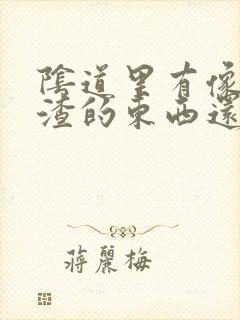 陰道里有像
渣的東西還
蔣麗梅